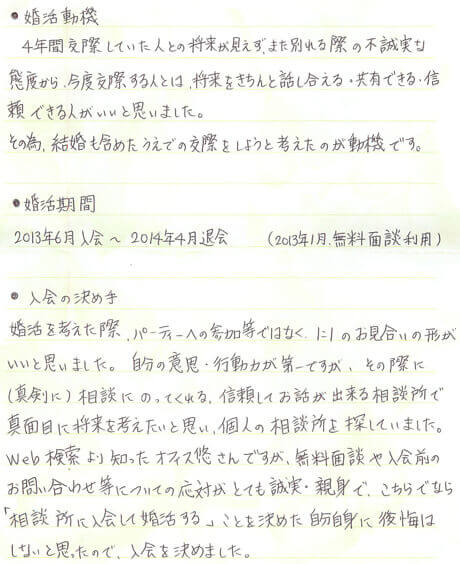 • 婚活動機
4年間交際していた人との将来が見えず、また別れる際の不誠実な
態度から、今度交際する人とは、将来をきちんと話し合える・共有できる・信
頼できる人がいいと思いました。
その為、結婚も含めたうえでの交際をしようと考えたのが動機です。
• 婚活期間
2013年6月入会～2014年4月退会 (2013年1月、無料面談利用)
• 入会の決め手
婚活を考えた際、パーティーへの参加等ではなく、1:1のお見合いの形が
いいと思いました。自分の意思・行動力が第一ですが、その際に
(真剣に)相談にのってくれる、信頼してお話が出来る相談所で
真面目に将来を考えたいと思い、個人の相談所を探していました。
Web検索より知ったオフィス悠さんですが、無料面談や入会前の
お問い合わせ等についての応対がとても誠実・親身で、こちらでなら
「相談所に入会して婚活する」ことを決めた自分自身に後悔は
しないと思ったので、入会を決めました。